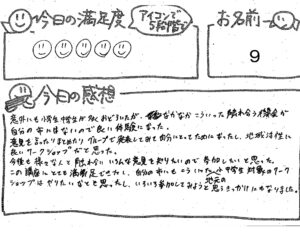 今日の満足度
アイコンで
5段階
お名前
9
今日の感想
意外にも小学生中学生が多くおどろいたが、なかなかこういった触れ合う機会が
自分の年にはないので良い体験になった。
意見を言ったりまとめたりグループで発表してみて自分にとってためになったし、地域活性に
良いワークショップだと思った。
今後も様々な人と触れ合いいろんな意見を知りたいので参加したいと思った。
この講座にとても満足できたし、自分の中にもこういった中学生対象のワーク
ショップはやりたいなとも思ったし、いろいろ参加してみようと思うきっかけにもなりました。
地元の